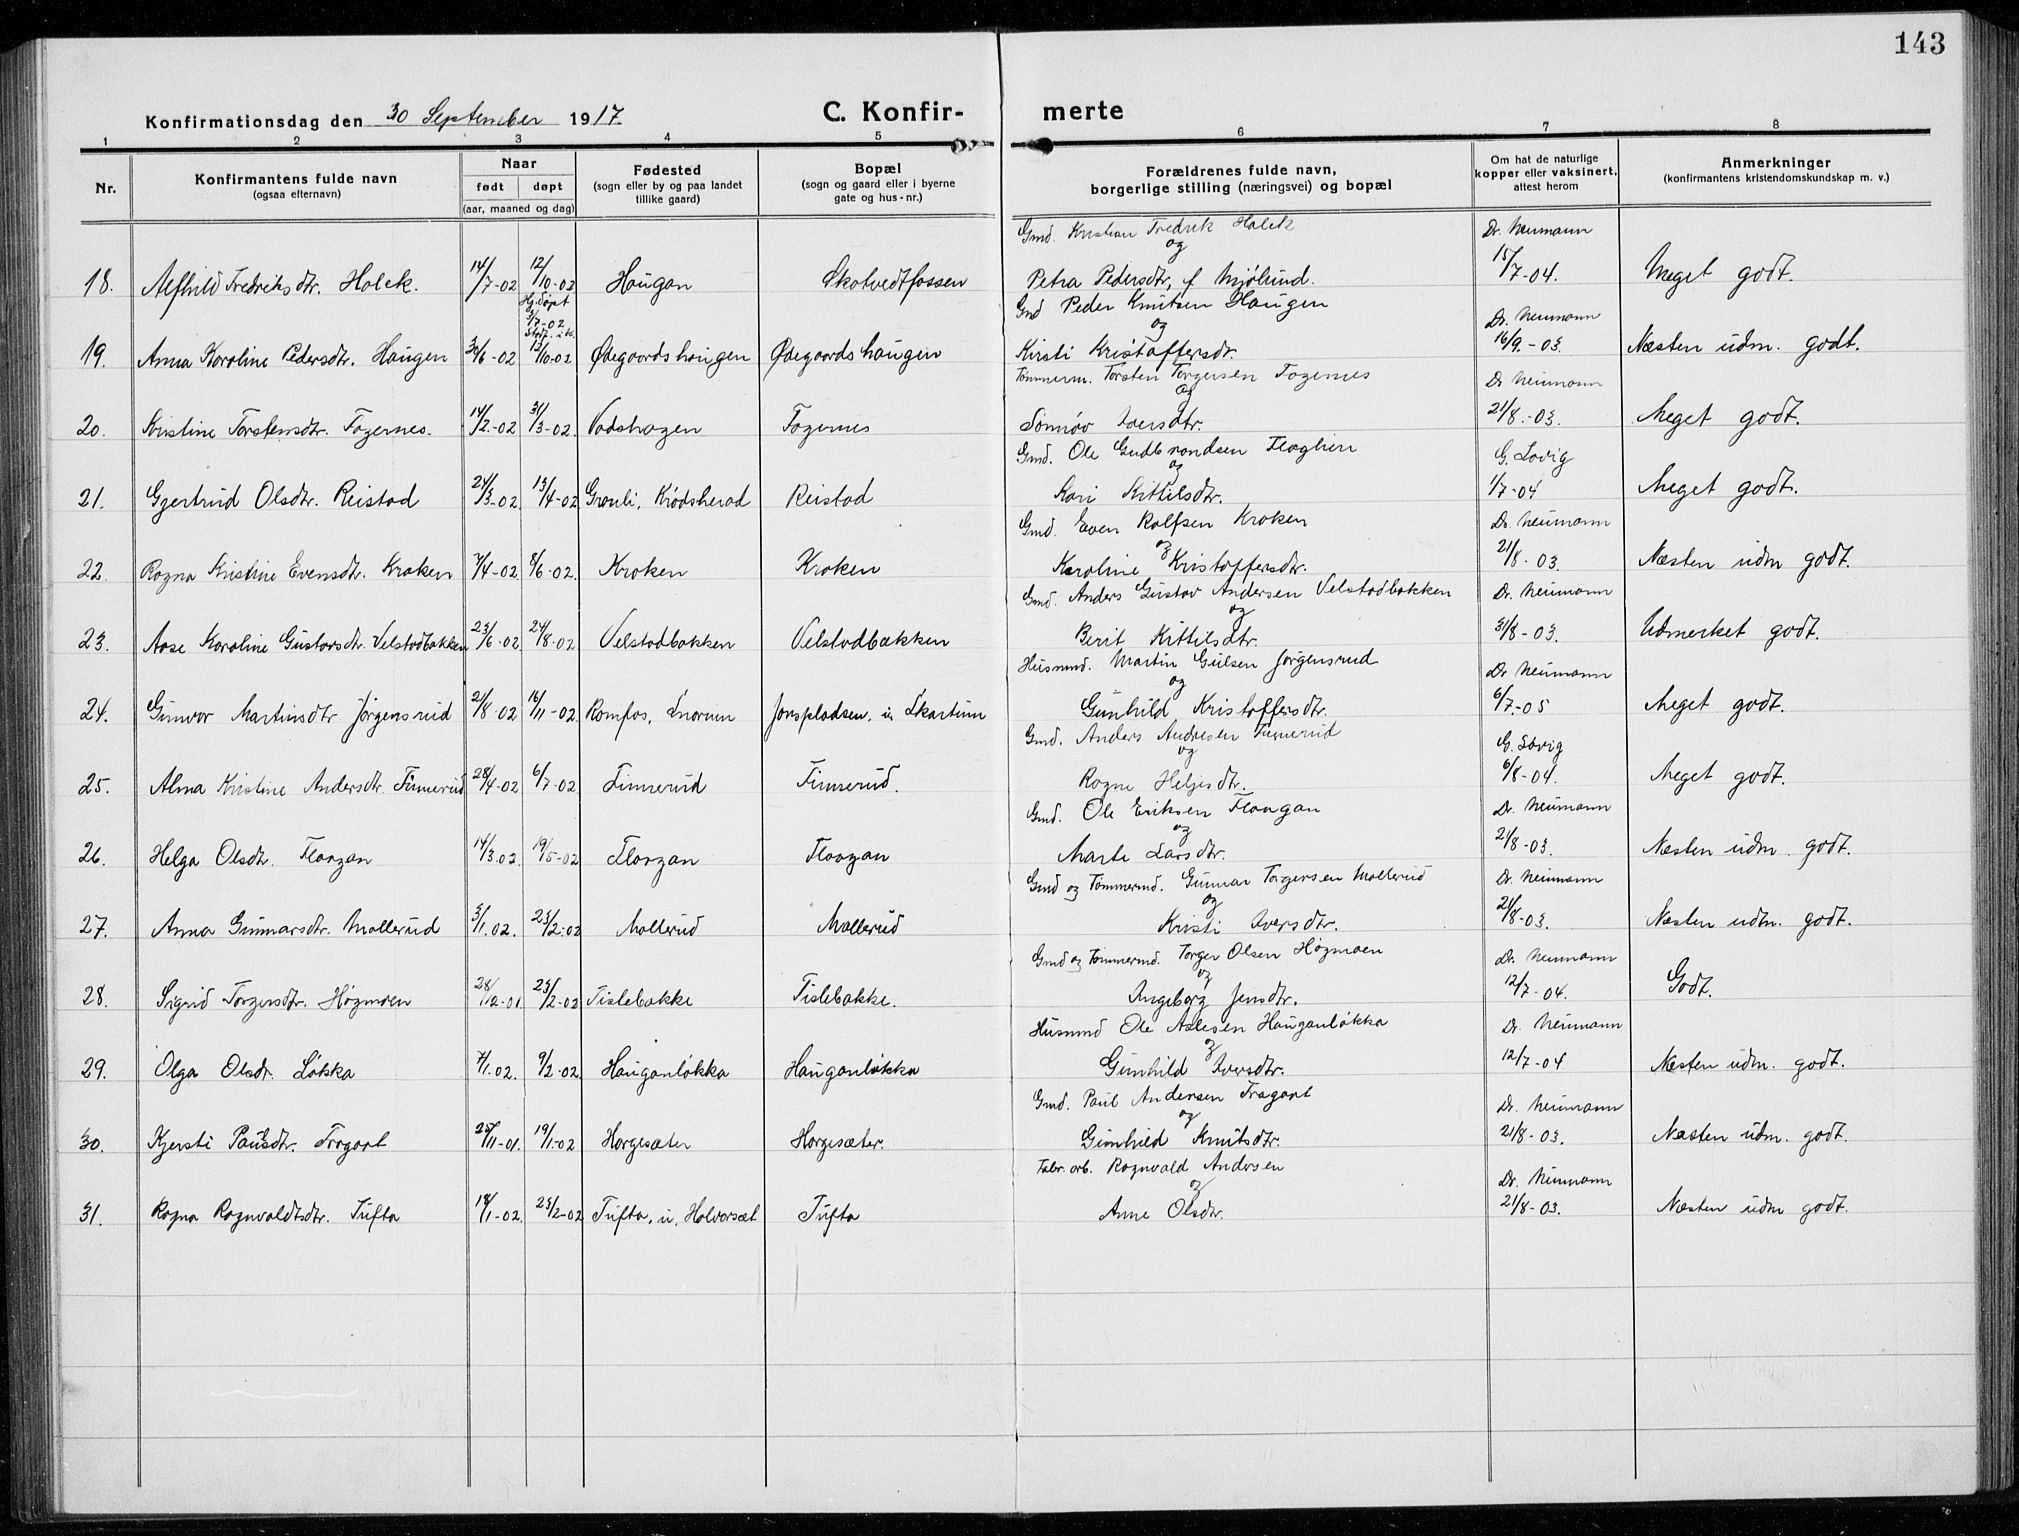 143
Konfirmationsdag den 30 September 1917. C. Konfir- merte
1 2 3 4 5 6 7 8
Nr. Konfirmantens fulde navn (ogsaa efternavn) Naar født døpt (aar, maaned og dag) Fødested (sogn eller by og paa landet tillike gaard) Bopæl (sogn og gaard eller i byerne gate og hus-nr.) Forældrenes fulde navn, borgerlige stilling (næringsvei) og bopæl Om hat de naturlige kopper eller vaksinert, attest herom Anmerkninger (konfirmantens kristendomskundskap m. v.)
Gmd. Kristian Fredrik Holck Dr. Neumann
og
18. Alfhild Fredriksdtr. Holck. 14/7-02 12/10-02 Haugan Skotvedtfossen Petra Pedersdtr, f Mjølund. 15/7-04. Meget godt.
Hj. døpt 3/7-02 Gmd Peder Knutsen Haugen
og Dr. Neumann
19. Anna Karoline Pedersdtr. Haugen 30/6-02 12/10-02 Ødegaardshaugen Ødegaardshaugen Kirsti Kristoffersdtr. 16/9.-03. Næsten udm. godt.
Tømmerm. Torsten Torgersen Fagernes Dr Neumann
og
20. Kristine Torstensdtr. Fagernes. 14/2.-02 31/3-02. Vadshagen Fagernes Sønnøv Iversdtr. 21/8.-03. Meget godt.
Gmd. Ole Gudbrandsen Flaglien G. Lovig
og
21. Gjertrud Olsdtr. Reistad 24/3.02. 13/4-02 Grønli, Krødsherad Reistad Kari Kittilsdtr. 1/7-04 Meget godt.
Gmd. Even Rolfsen Kroken Dr. Neumann
og
22. Ragna Kristine Evensdtr. Kroken 7/4-02. 8/6-02. Kroken Kroken Karoline Kristoffersdtr. 21/8-03. Næsten udm godt.
Gmd. Anders Gustav Andersen Velstadbakken Dr. Neumann
og
23. Aase Karoline Gustavsdtr. Velstadbakken 23/6-02. 24/8-02 Velstadbakken Velstadbakken Berit Kittilsdtr. 31/8-03. Udmerket godt.
Husmd. Martin Gulsen Jørgensrud Dr Neumann
og
24. Gunvor Martinsdtr Jørgensrud 21/8-02 16/11-02. Ramfos, Snarum Jonspladsen, u, Skartum Gunhild Kristoffersdtr. 6/7.-05 Meget godt.
Gmd. Anders Andresen Finnerud G. Lovig
og
25. Alma Kristine Andersdtr. Finnerud 28/4-02 6/7-02 Finnerud Finnerud. Ragne Helgesdtr. 6/8-04. Meget godt.
Gmd. Ole Eriksen Flaagan Dr. Neumann
og
26. Helga Olsdtr. Flaagan 14/3.02. 19/5-02 Flaagan Flaagan Marte Larsdtr. 21/8-03. Næsten udm. godt.
Gmd og Tømmermd. Gunnar Torgersen Møllerud Dr. Neumann
og
27. Anna Gunnarsdtr. Møllerud 3/1.02. 23/2-02 Møllerud Møllerud Kristi Iversdtr. 21/8-03. Næsten udm. godt.
Gmd og Tømmermd. Torger Olsen Høgmoen Dr. Neumann
og
28. Sigrid Torgersdtr. Høgmoen 28/12-01. 23/2-02 Tislebakke Tislebakke. Ingeborg Jensdtr. 12/7-04. Godt.
Husmd Ole Aslesen Hauganløkka Dr. Neumann
og
29. Olga Olsdr. Løkka 7/1.02. 9/2-02. Hauganløkka Hauganløkka Gunhild Iversdtr. 12/7-04 Næsten udm. godt.
Gmd. Paul Andersen Fragart Dr. Neumann
og
30. Kjersti Paulsdtr. Fragart 25/11-01. 19/1-02 Horgesæter Horgesæter. Gunhild Knutsdtr. 21/8-03. Næsten udm. godt.
Fabr. arb. Ragnvald Andersen Dr. Neumann
og
31. Ragna Ragnvaldsdtr. Tufta 18/1-02. 23/2-02 Tufta, u, Halvorsæt Tufta Anne Olsdtr. 21/8-03. Næsten udm godt.